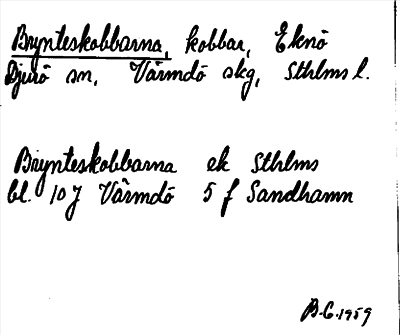 Brynteskobbarna, kobbar, Eknö
Djurö sn, Värmdö skg, Sthlms l.
Brynteskobbarna ek Sthlms
bl. 10 J Värmdö 5 f Sandhamn
B.G. 1959